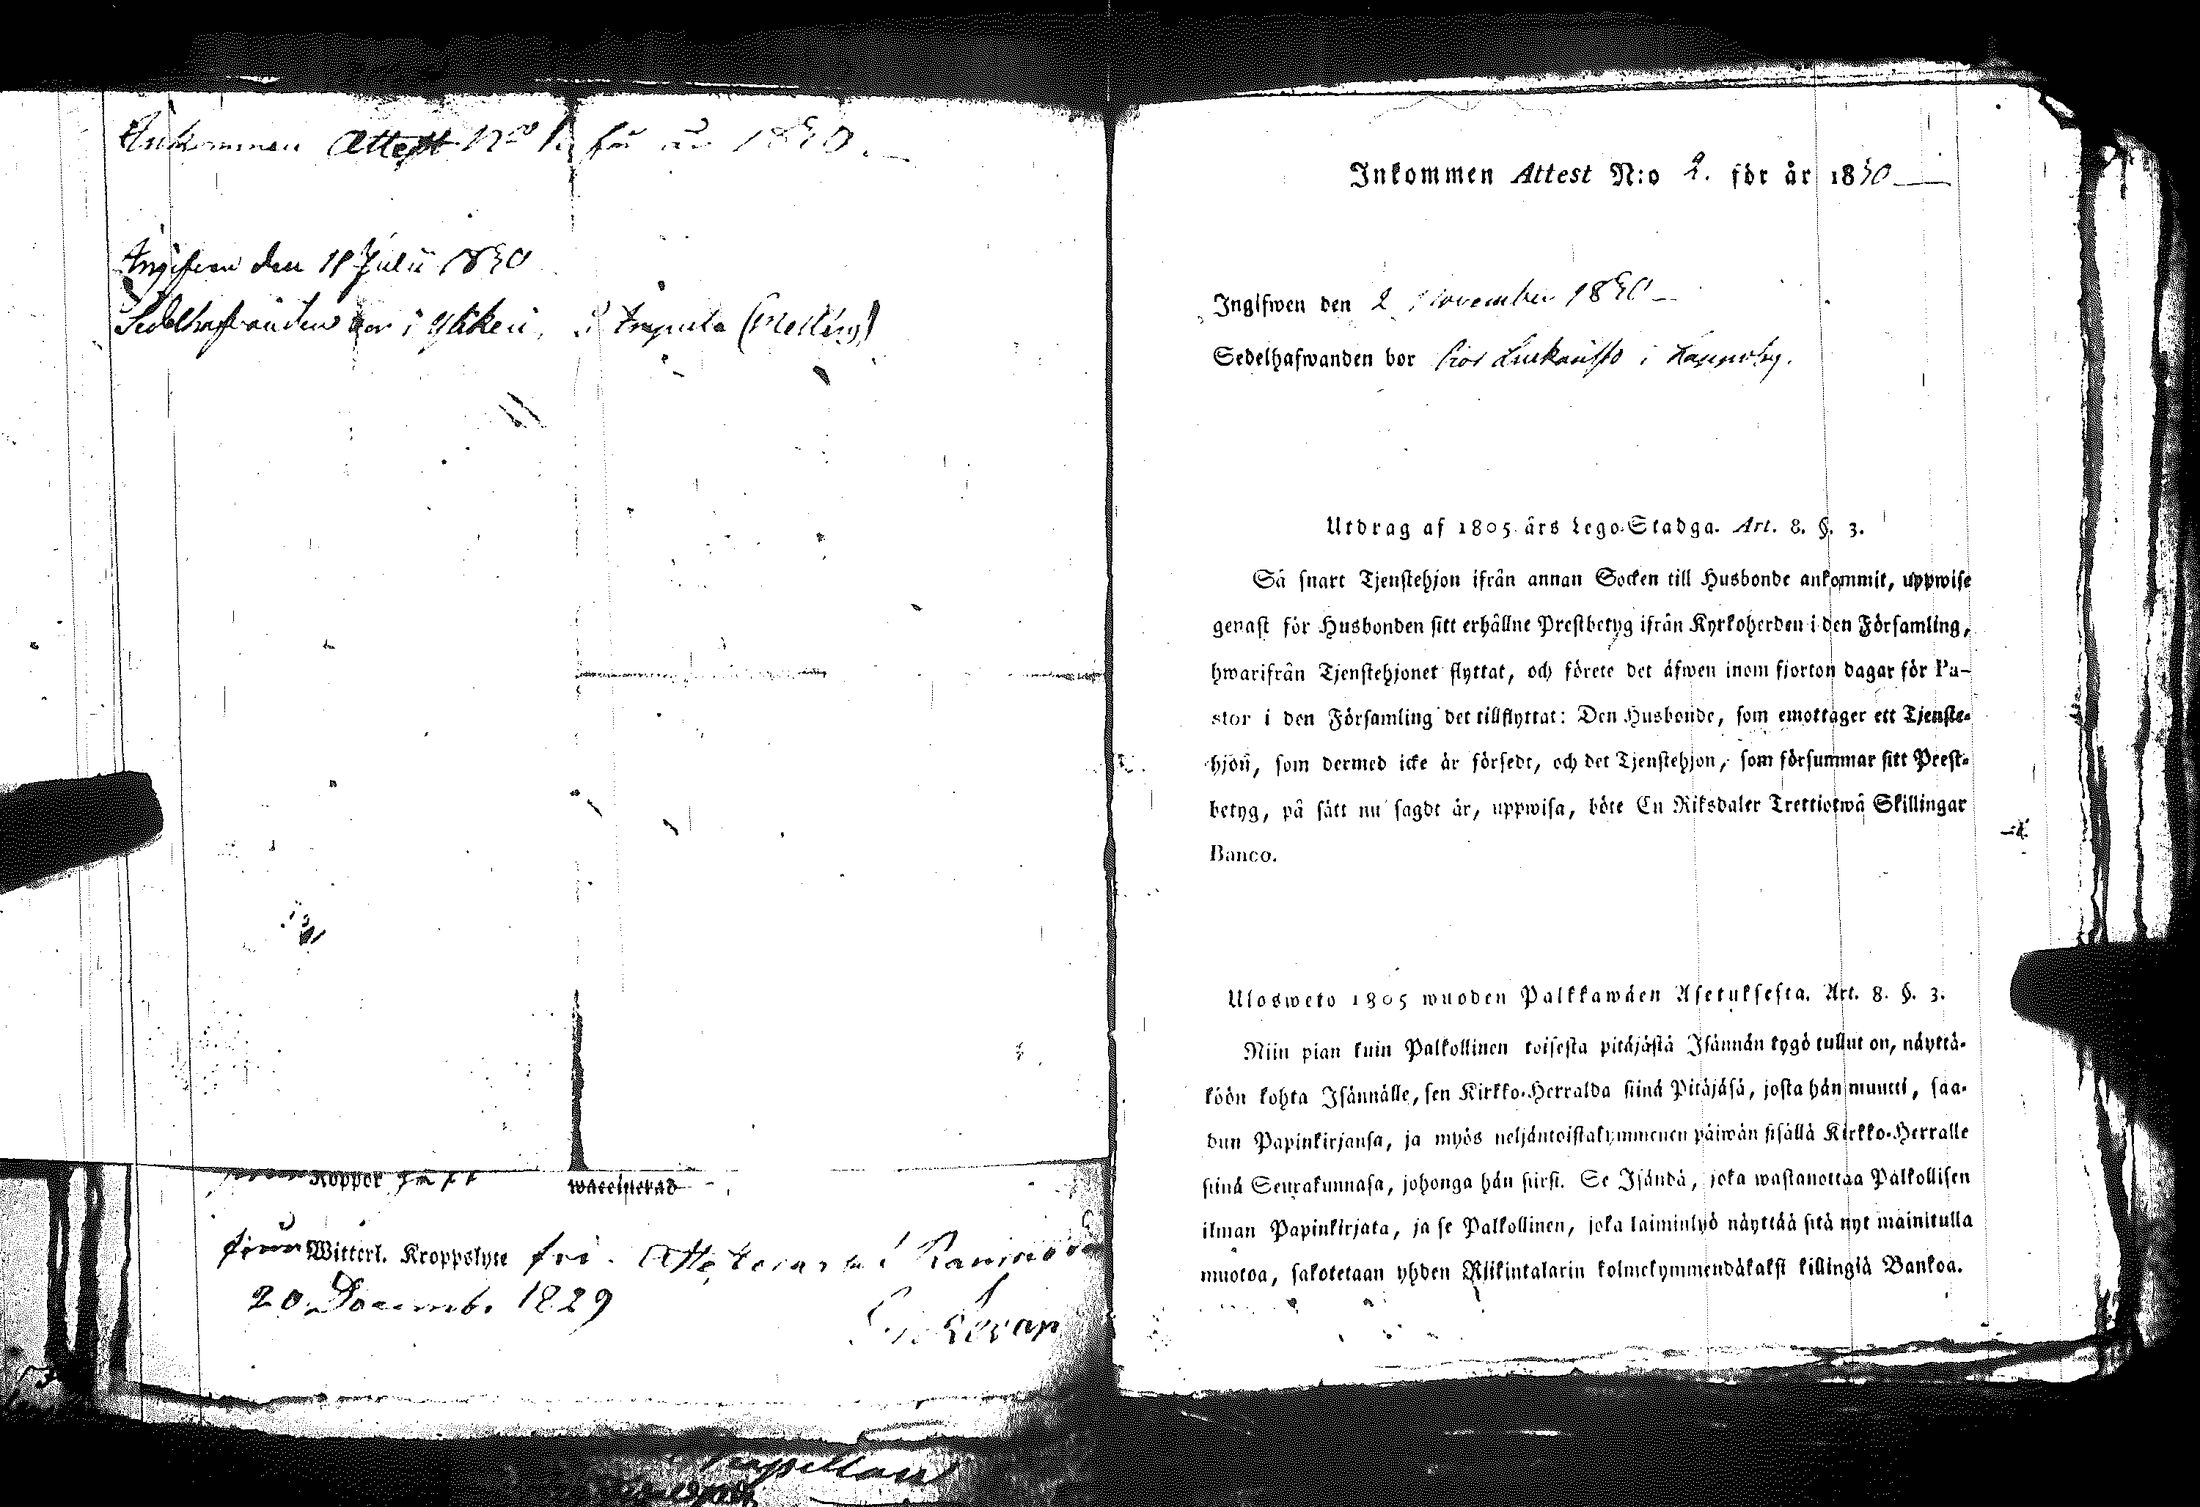 Inkommen Attest No 1. för år 1830.
Ingifven den 18 Julii 1830
Sedelhafvanden bor i
Kopper haft
vaccinerad
Witterl. Kroppslyte fri.
20 Decemb. 1829
Capellan
Inkommen Attest N:o 2. för år 1830
Ingifwen den 2 November 1830
Sedelhafwanden bor hos i
Utdrag af 1805 års Lego-Stadga. Art. 8. §. 3.
Så snart Tjenstehjon ifrån annan Socken till Husbonde ankommit, uppwise
genast för Husbonden sitt erhållne Prestbetyg ifrån Kyrkoherden i den Församling,
hwarifrån Tjenstehjonet flyttat, och förete det äfwen inom fjorton dagar för Pa-
stor i den Församling det tillflyttat: Den Husbonde, som emottager ett Tjenste-
hjon, som dermed icke är försedt, och det Tjenstehjon, som försummar sitt Prest-
betyg, på sätt nu sagdt är, uppwisa, böte En Riksdaler Trettiotwå Skillingar
Banco.
Ulosweto 1805 wuoden Palkkawäen Asetuksesta. Art. 8. §. 3.
Niin pian kuin Palkollinen toisesta pitäjästä Isännän tygö tullut on, näyttä-
köön kohta Isännälle, sen Kirkko-Herralda siinä Pitäjäsä, josta hän muutti, saa-
dun Papinkirjansa, ja myös neljäntoistakymmenen päiwän sisällä Kirkko-Herralle
siinä Seurakunnasa, johonga hän siirsi. Se Isändä, joka wastanottaa Palkollisen
ilman Papinkirjata, ja se Palkollinen, joka laiminlyö näyttää sitä nyt mainitulla
muotoa, sakotetaan yhden Riikintalarin kolmekymmendäkaksi killingiä Bankoa.